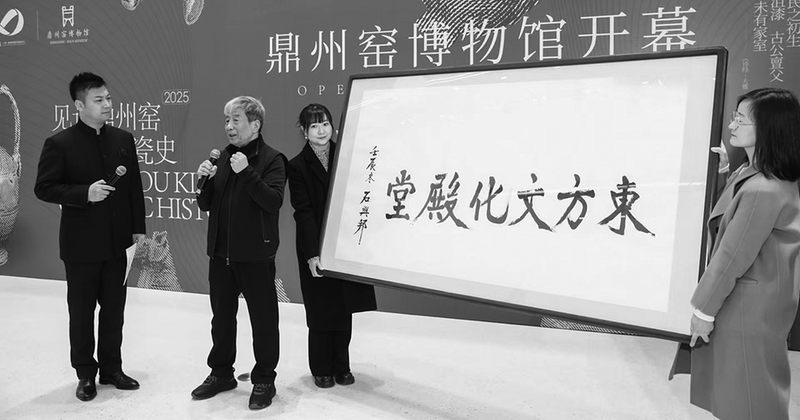 鼎州窑博物馆
鼎州窑博物馆开幕
OPE
2025
见证鼎州窑
瓷史
OU KI
C HIST
民之初生
沮漆 古公亶父
未有家室
東方文化殿堂
壬辰末 石興邦